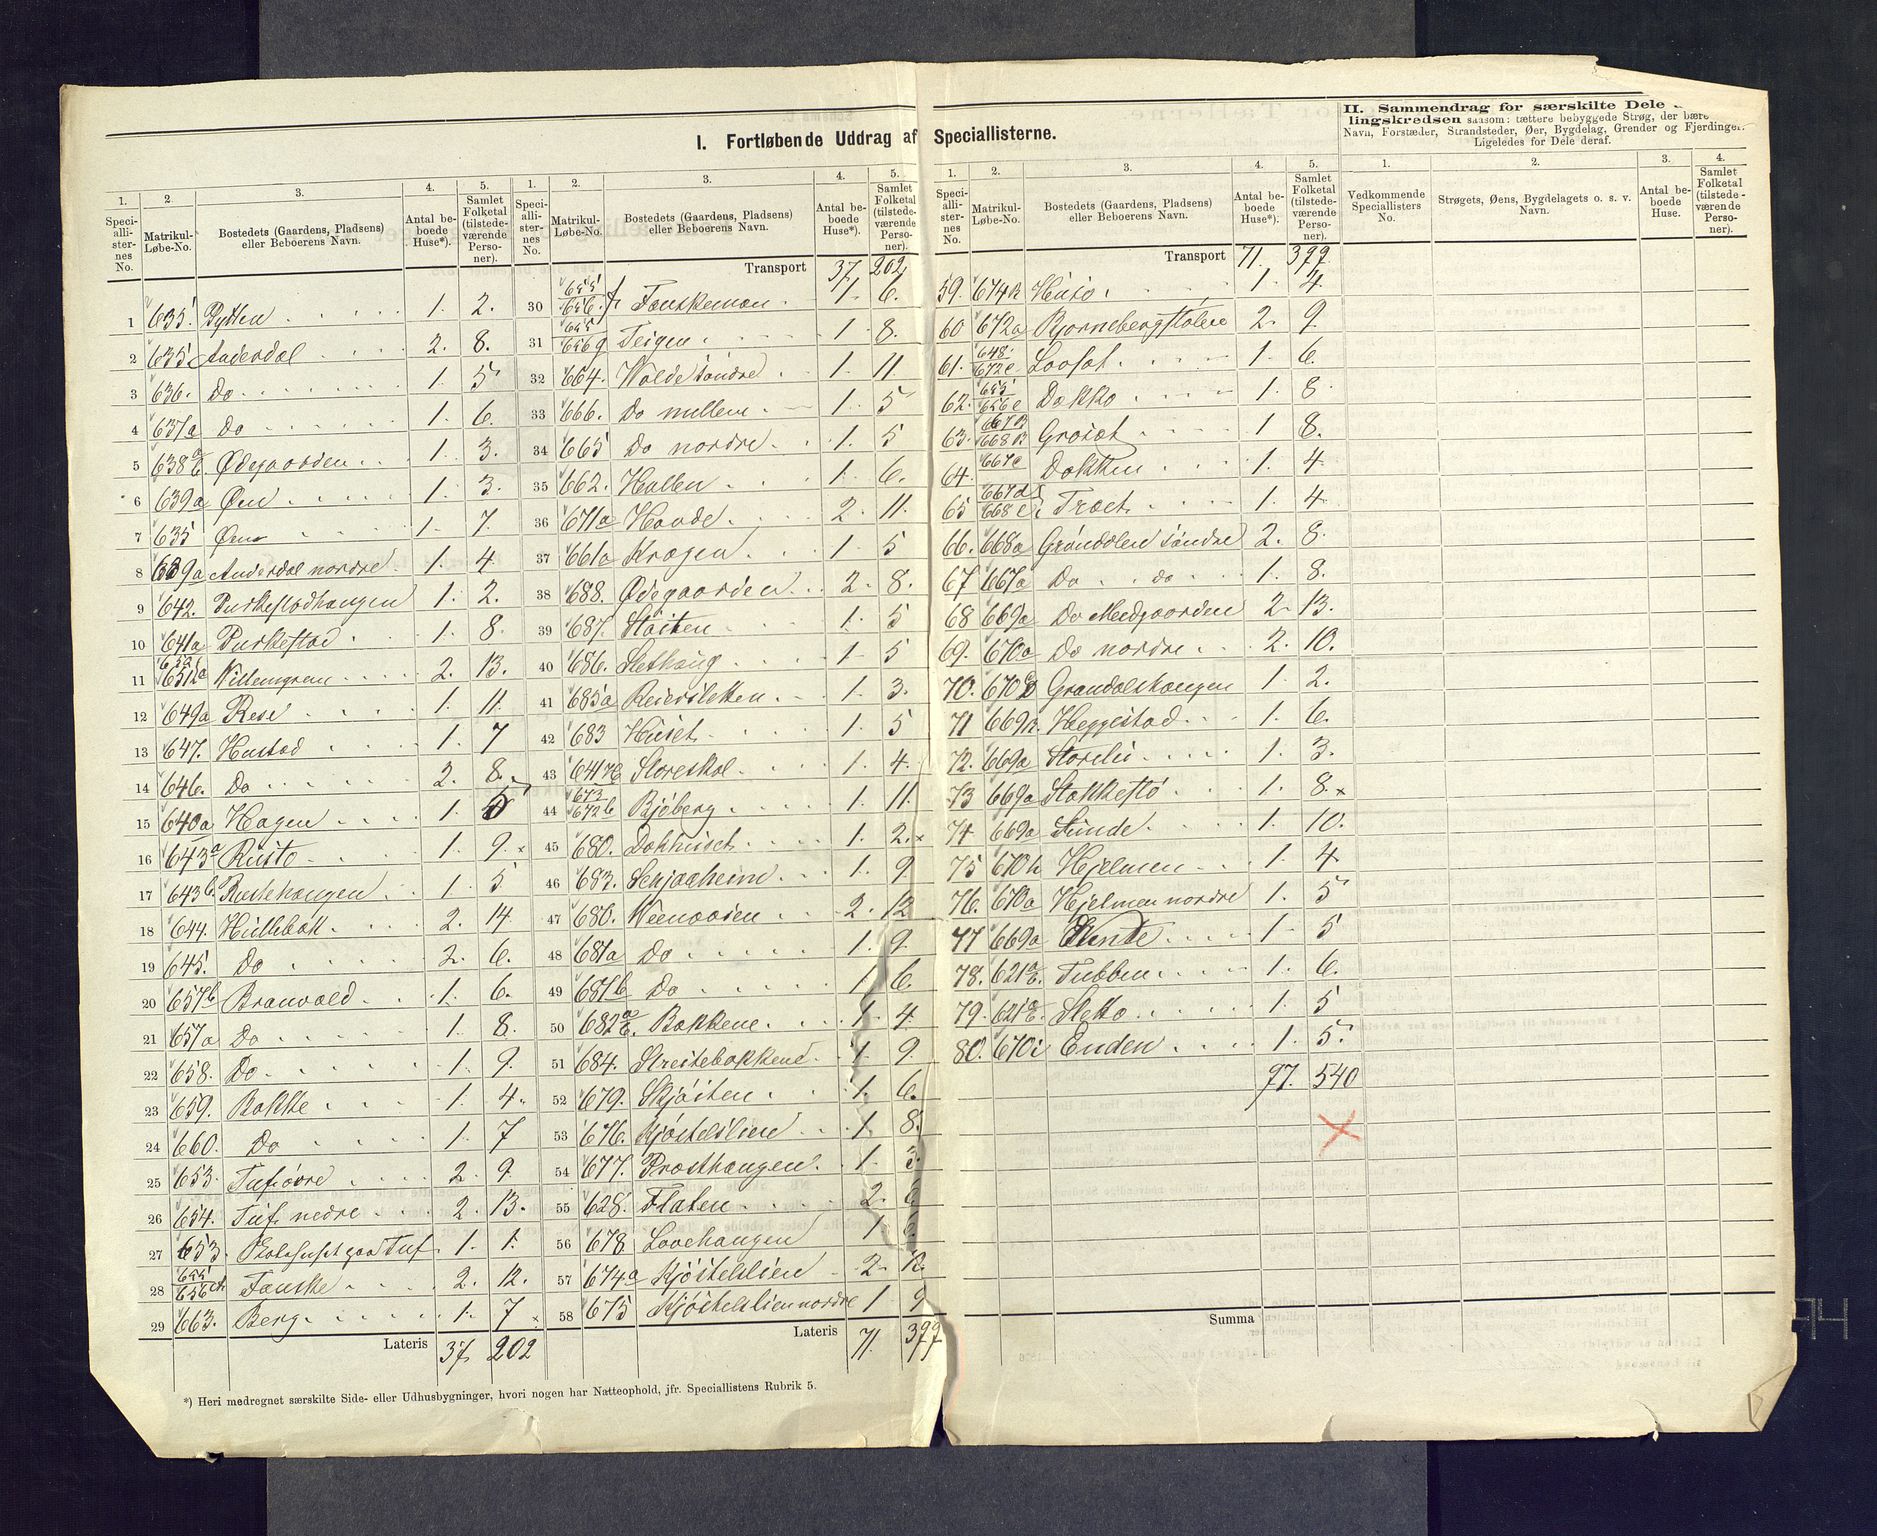 I. Fortløbende Uddrag af Speciallisterne.
II. Sammendrag for særskilte Dele
lingskredsen saasom: tættere bebyggede Strøg, der bære
Navn, Forstæder, Strandsteder, Øer, Bygdelag, Grender og Fjerdinger.
Ligeledes for Dele deraf.
1. 2 3. 4. 5.
Speciallisternes No. Matrikul-Løbe-No. Bostedets (Gaardens, Pladsens) eller Beboerens Navn. Antal beboede Huse*). Samlet Folketal (tilstedeværende Personer).
1 635. Pytten 1. 2.
2 635 Anderdal 2. 8.
3 636. Do 1. 5
4 637a Do 1. 6.
5 638a Ødegaarden 1. 3.
6 639a Øen 1. 3.
7 635 Øen 1. 7.
8 639a Anderdal nordre 1. 4.
9 642. Purkestadhaugen 1. 2.
10 641a Purkestad 1. 8.
11 652 651a Villemgrem 2. 13.
12 649a Rese 1. 11.
13 647. Hustad 1. 7
14 646. Do 2. 8.
15 640a Hagen 1. 5
16 643a Rusto 1. 9. x
17 643b. Rustehaugen 1. 5
18 644. Hullebak 2. 14.
19 645. Do 2. 6.
20 657b Branvold 1. 6.
21 657a Do 1. 8.
22 658. Do 1. 9.
23 659. Bakke 1. 4.
24 660. Do 1. 7
25 653. Tuf øvre 2. 9.
26 654. Tuf nedre 2. 13.
27 653. Skolehuset paa Tuf 1. 1.
28 655 656 Fauske 2. 12.
29 663. Berg 1. 7 x
Lateris 37 202
1. 2. 3. 4. 5.
Speciallisternes No. Matrikul-Løbe-No. Bostedets (Gaardens, Pladsens) eller Beboerens Navn. Antal beboede Huse*). Samlet Folketal (tilstedeværende Personer).
Transport 37 202
30 655 656.f Fauskemoen 1 6.
31 655 656g Teigen 1 8.
32 664. Wolde søndre 1 11
33 666. Do mellem 1. 5
34 665 Do nordre 1. 5
35 662. Hallen 1 6.
36 671a Haude 2. 11.
37 661a Kragen 1. 5
38 688. Ødegaarden 2. 8.
39 687. Støiten 1. 5
40 686. Slethaug 1. 5
41 685a Reiersletten 1. 3.
42 683 Huset 1. 5
43 641 Storeskol 1. 4.
44 673 672b Bjøberg 1. 11.
45 680. Dokhuset 1. 2. x
46 683. Senjaaheim 1. 9
47 680. Veenaasen 2. 12
48 681a Do 1. 9.
49 681b Do 1 6.
50 682a Bakkene 1 4.
51 684. Streitebakkene 1. 9.
52 679. Skjøiten 1. 6.
53 676. Kjøstelslien 1. 8.
54 677. Præsthaugen 1. 3.
55 628. Flaten 2. 6.
56 678 Lovehaugen 1 6.
57 674a Kjøstelslien 2. 12.
58 675 Kjøstelslien nordre 1 9
Lateris 71. 399
1. 2. 3. 4. 5.
Speciallisternes No. Matrikul-Løbe-No. Bostedets (Gaardens, Pladsens) eller Beboerens Navn. Antal beboede Huse*). Samlet Folketal (tilstedeværende Personer).
Transport 71. 399.
59. 674 Huso 1. 4.
60 672a Bjørnebergstølen 2. 9.
61. 648. 672c Loosat 1. 6.
62. 655 656e Dokko 1. 8.
63. 667B 668B Grosæt 1 8.
64. 667c Dokken 1. 4.
65 667d 668c Træet 1. 4
66. 668a Grøndalen søndre 2. 8.
67 667a Do do 1. 8.
68 669a Do Meidgaarden 2. 13.
69. 670a Do nordre 2. 10.
70. 670 Grøndalshaugen 1 2.
71 669 Heggestad 1. 6.
72. 669a Storelii 1. 3.
73 669a Stokkestø 1. 8. x
74 669a Sunde 1. 10.
75 670h Hjelmen 1. 4
76. 670a Hjelmen nordre 1. 5
77 669a Sunde 1. 5
78. 621a Tubben 1. 6.
79. 621a Sletto 1. 5
80. 670i Enden 1. 5.
97. 540
Summa
1. 2. 3. 4.
Vedkommende Speciallisters No. Strøgets, Øens, Bygdelagets o. s. v. Navn. Antal beboede Huse. Samlet Folketal (tilstedeværende Personer).
*) Heri medregnet særskilte Side- eller Udhusbygninger, hvori nogen har Natteophold, jfr. Speciallistens Rubrik 5.